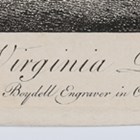 Virginia
Boydell Engraver in